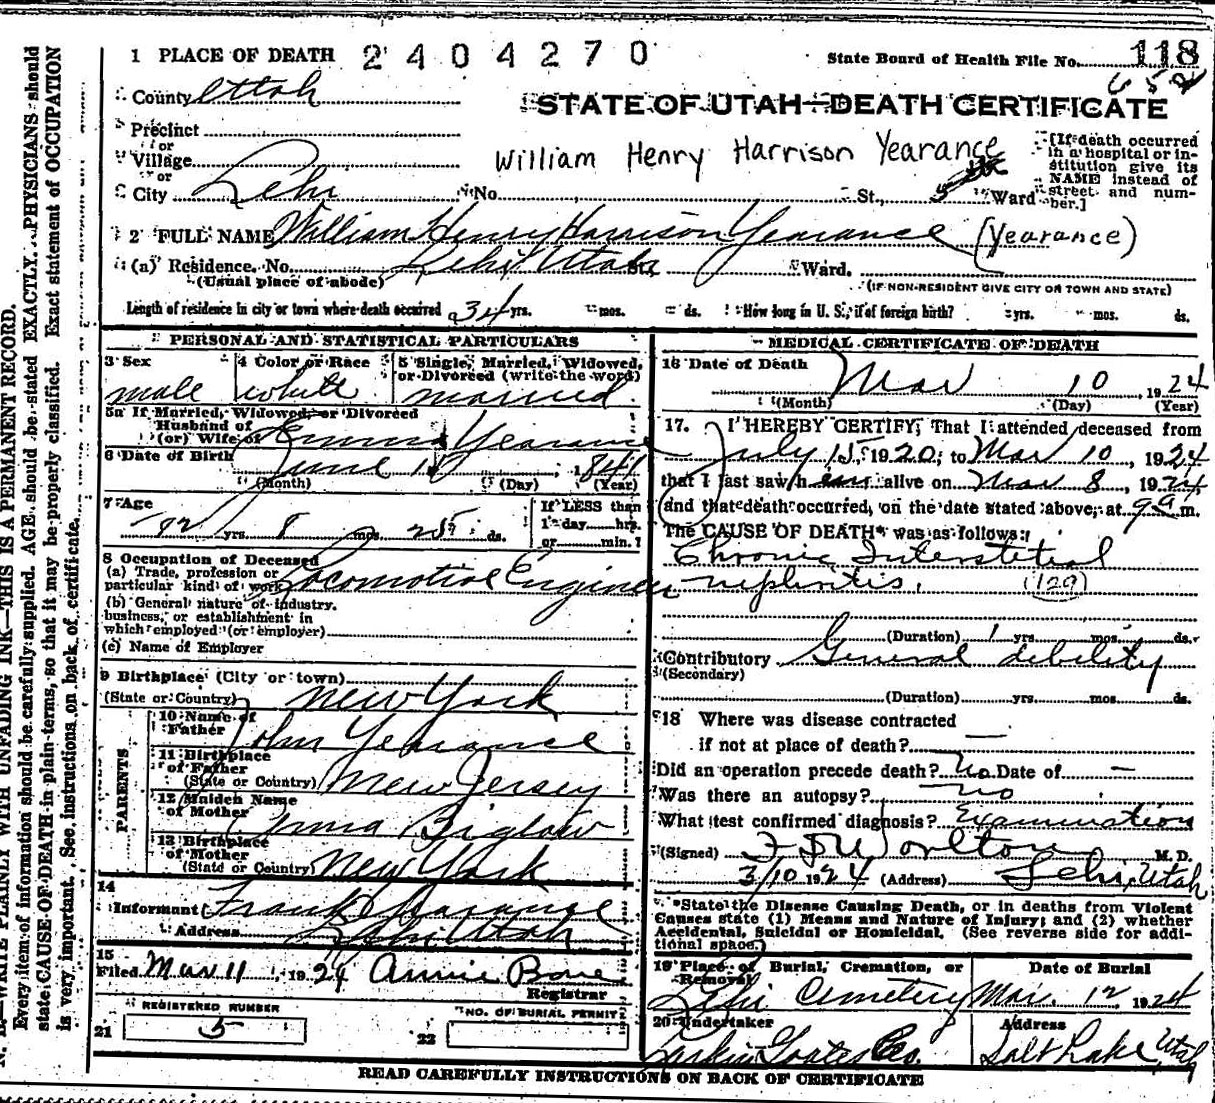 1 PLACE OF DEATH 2404270 State Board of Health File No. 118
652
County Utah
STATE OF UTAH—DEATH CERTIFICATE
Precinct
or
Village
or
City Lehi No. St., 5 Ward
William Henry Harrison Yearance
[If death occurred in a hospital or institution give its NAME instead of street and number.]
2 FULL NAME William Henry Harrison Yearance (Yearance)
(a) Residence. No. Lehi Utah St. Ward.
(Usual place of abode) (IF NON-RESIDENT GIVE CITY OR TOWN AND STATE)
Length of residence in city or town where death occurred 34 yrs. mos. ds. How long in U. S., if of foreign birth? yrs. mos. ds.
PERSONAL AND STATISTICAL PARTICULARS
3 Sex 4 Color or Race 5 Single, Married, Widowed, or Divorced (write the word)
male white married
5a If Married, Widowed, or Divorced
Husband of
(or) Wife of Emma Yearance
6 Date of Birth June 1841
(Month) (Day) (Year)
7 Age If LESS than
yrs. 8 mos. 25 ds. 1 day hrs.
or min.?
8 Occupation of Deceased
(a) Trade, profession or
particular kind of work Locomotive Engineer
(b) General nature of industry,
business, or establishment in
which employed (or employer)
(c) Name of Employer
9 Birthplace (City or town)
(State or Country) New York
PARENTS
10 Name of
Father John Yearance
11 Birthplace
of Father
(State or Country) New Jersey
12 Maiden Name
of Mother Emma Biglow
13 Birthplace
of Mother
(State or Country) New York
14
Informant Frank Yearance
Address Lehi Utah
15
Filed Mar 11, 1924 Annie Bone
Registrar
REGISTERED NUMBER NO. OF BURIAL PERMIT
21 5 22
MEDICAL CERTIFICATE OF DEATH
16 Date of Death Mar 10, 1924
(Month) (Day) (Year)
17. I HEREBY CERTIFY, That I attended deceased from
July 15, 1920, to Mar 10, 1924
that I last saw h im alive on Mar 8, 1924
and that death occurred, on the date stated above, at 9 a m.
The CAUSE OF DEATH* was as follows:
Chronic Interstitial
nephritis. (129)
(Duration) 1 yrs. mos. ds.
Contributory General debility
(Secondary)
(Duration) yrs. mos. ds.
18 Where was disease contracted
if not at place of death? —
Did an operation precede death? No Date of —
Was there an autopsy? no
What test confirmed diagnosis? Examination
(Signed) Worlton M. D.
3/10 1924 (Address) Lehi, Utah
*State the Disease Causing Death, or in deaths from Violent
Causes state (1) Means and Nature of Injury; and (2) whether
Accidental, Suicidal or Homicidal. (See reverse side for addi-
tional space.)
19 Place of Burial, Cremation, or Removal Date of Burial
Lehi Cemetery Mar. 12 1924
20 Undertaker Address
Larkin Goates Co. Salt Lake Utah
READ CAREFULLY INSTRUCTIONS ON BACK OF CERTIFICATE
WRITE PLAINLY WITH UNFADING INK—THIS IS A PERMANENT RECORD.
Every item of information should be carefully supplied. AGE should be stated EXACTLY. PHYSICIANS should
state CAUSE OF DEATH in plain terms, so that it may be properly classified. Exact statement of OCCUPATION
is very important. See instructions on back of certificate.